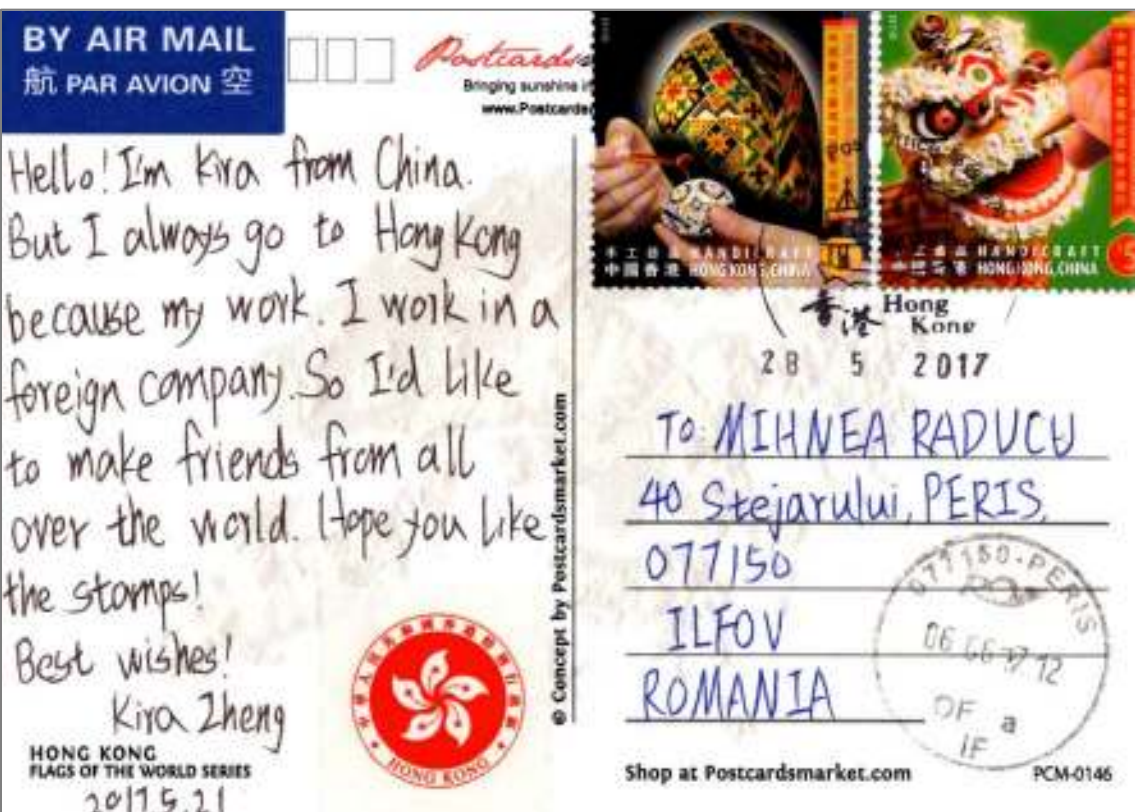 BY AIR MAIL
航 PAR AVION 空
Postcards
Bringing sunshine
www.Postcards
Hello! I'm Kira from China.
But I always go to Hong Kong
because my work. I work in a
foreign company. So I'd like
to make friends from all
over the world. Hope you like
the stamps!
Best wishes!
Kira Zheng
HONG KONG
FLAGS OF THE WORLD SERIES
2017.5.21
中華人民共和國香港特別行政區
HONG KONG
© Concept by Postcardsmarket.com
手工藝品 HANDICRAFT
中國香港 HONG KONG, CHINA
手工藝品 HANDICRAFT
中國香港 HONG KONG, CHINA
$5
香港 Hong
Kong
28 5 2017
TO: MIHNEA RADUCU
40 Stejarului, PERIS,
077150
ILFOV
ROMANIA
077150-PERIS
06 06 17. 12
OF a
IF
Shop at Postcardsmarket.com
PCM-0146